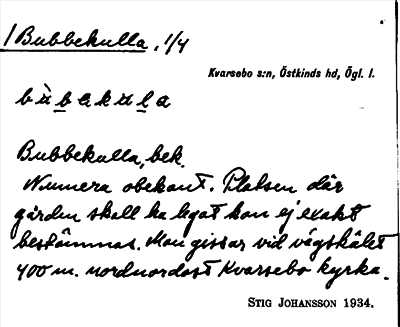 / Bubbekulla, 1/4
Kvarsebo s:n, Östkinds hd, Ögl. l.
bùbekula
Bubbekulla, bek.
Numera obekant. Platsen där
gården skall ha legat kan ej exakt
bestämmas. Man gissar vid vägskälet
400 m. nordnordost Kvarsebo kyrka.
STIG JOHANSSON 1934.